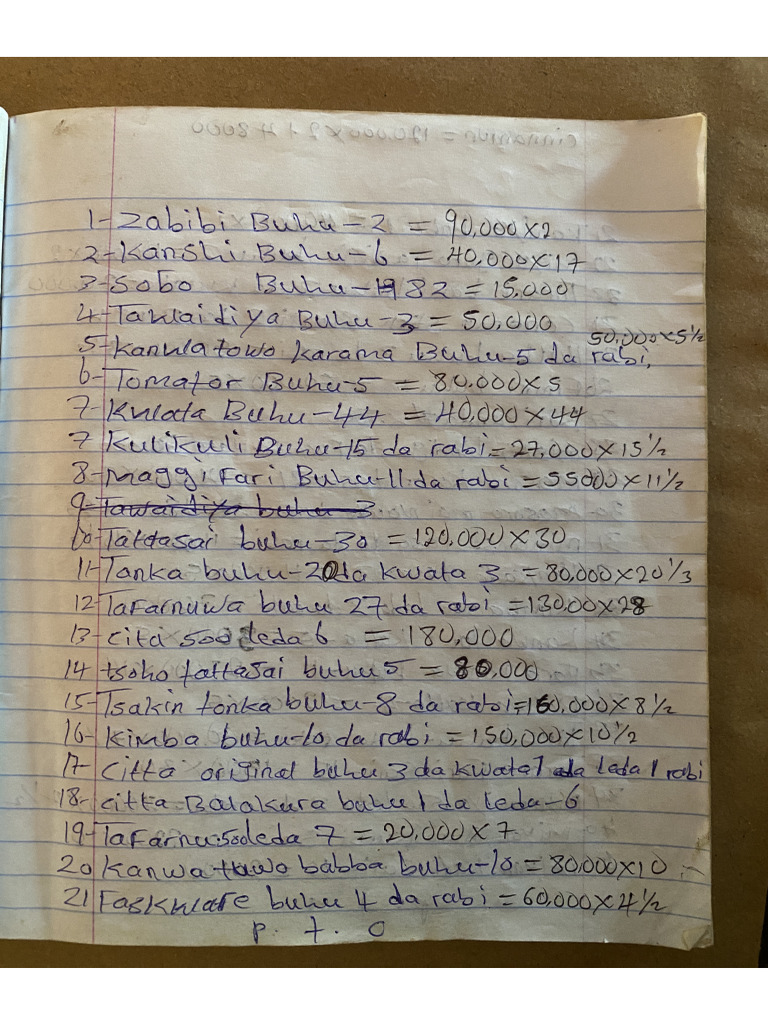 1-Zabibi Buhu-2 = 90,000x2
2-Kanshi Buhu-6 = 40,000x17
3-Sobo Buhu-82 = 15,000
4-Tawaidiya Buhu-3 = 50,000
50,000x5½
5-Kanwa towo Karama Buhu-5 da rabi,
6-Tomator Buhu-5 = 80,000x5
7-Kwata Buhu-44 = 40,000x44
7 Kulikuli Buhu-15 da rabi = 27,000x15½
8-Maggi Fari Buhu-11 da rabi = 55000x11½
9-Tawaidiya buhu-3
10-Tattasai buhu-30 = 120,000x30
11-Tonka buhu-20 da kwata 3 = 80,000x20⅓
12-Tafarnuwa buhu 27 da rabi = 130,00x28
13-cita 500 leda 6 = 180,000
14 tsoho tattasai buhu 5 = 80,000
15-Tsakin tonka buhu-8 da rabi = 160,000x8½
16-Kimba buhu-10 da rabi = 150,000x10½
17-Citta original buhu 3 da kwata 1 da leda 1 rabi
18-citta Balakura buhu 1 da leda-6
19-Tafarnu.500leda 7 = 20,000x7
20 Kanwa towo babba buhu-10 = 80,000x10
21 Faskware buhu 4 da rabi = 60,000x4½
p. t. o